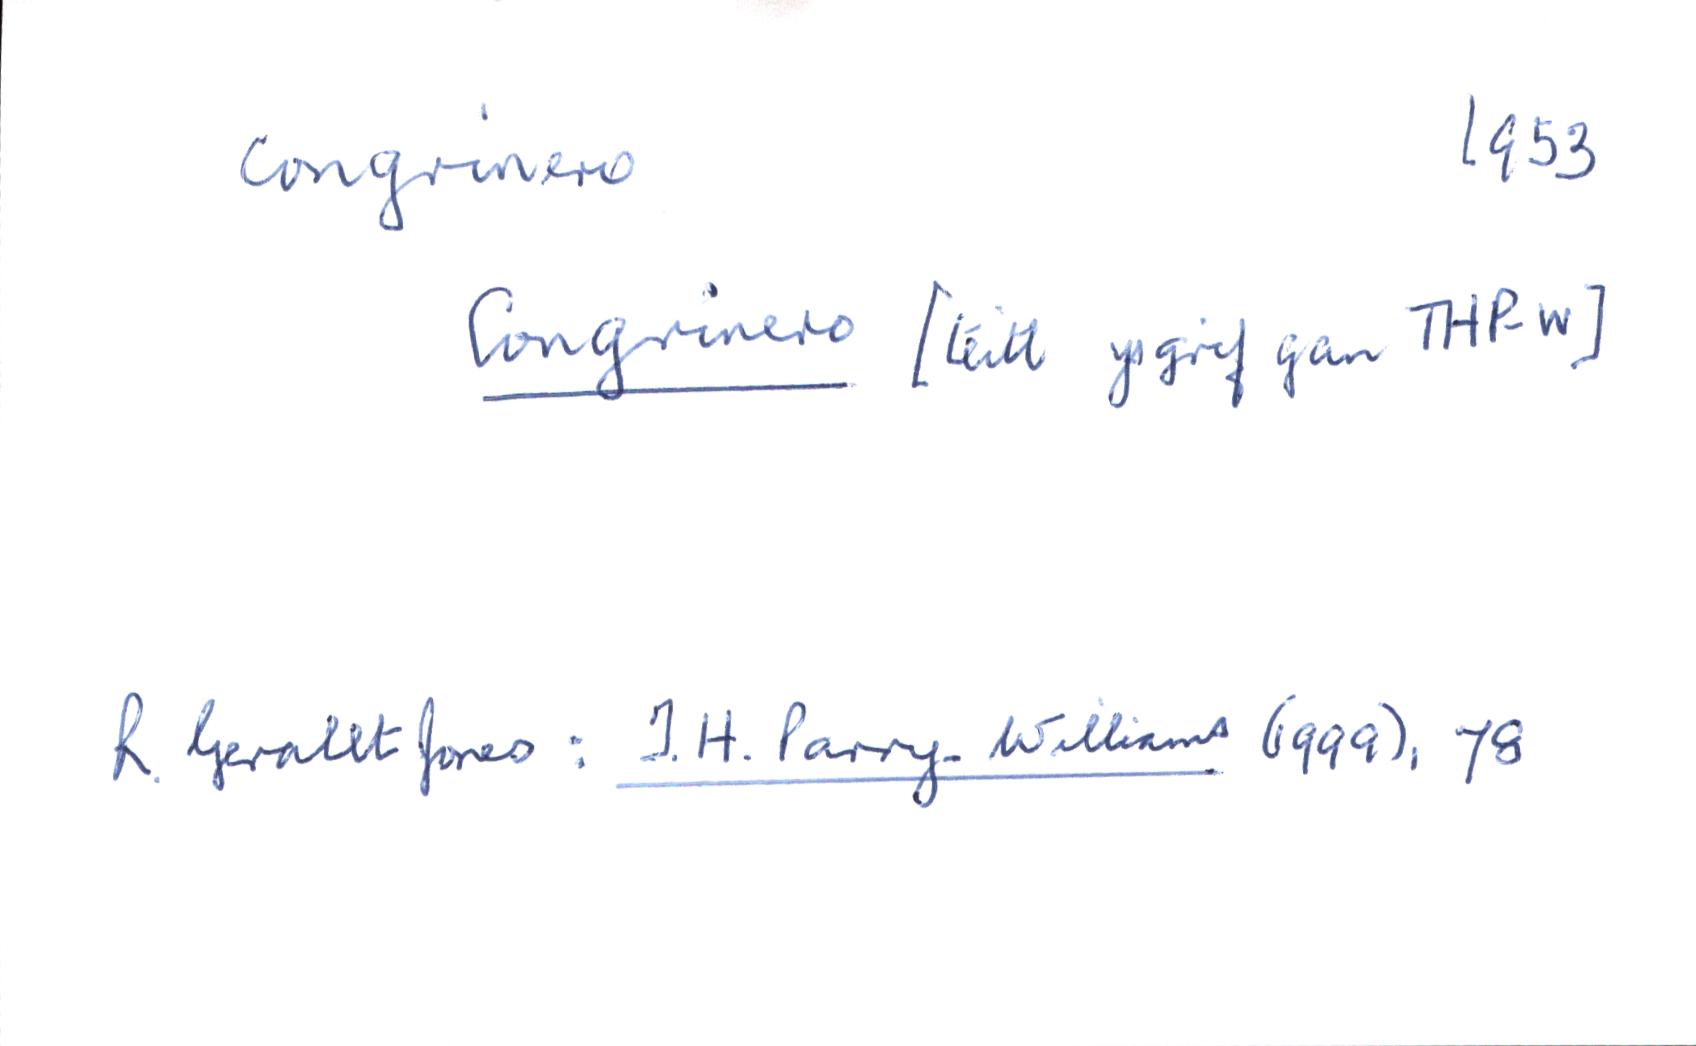 congrinero 1953
Congrinero [teitl ysgrif gan THP-W]
R. Gerallt Jones: T.H. Parry-Williams (1999), 78